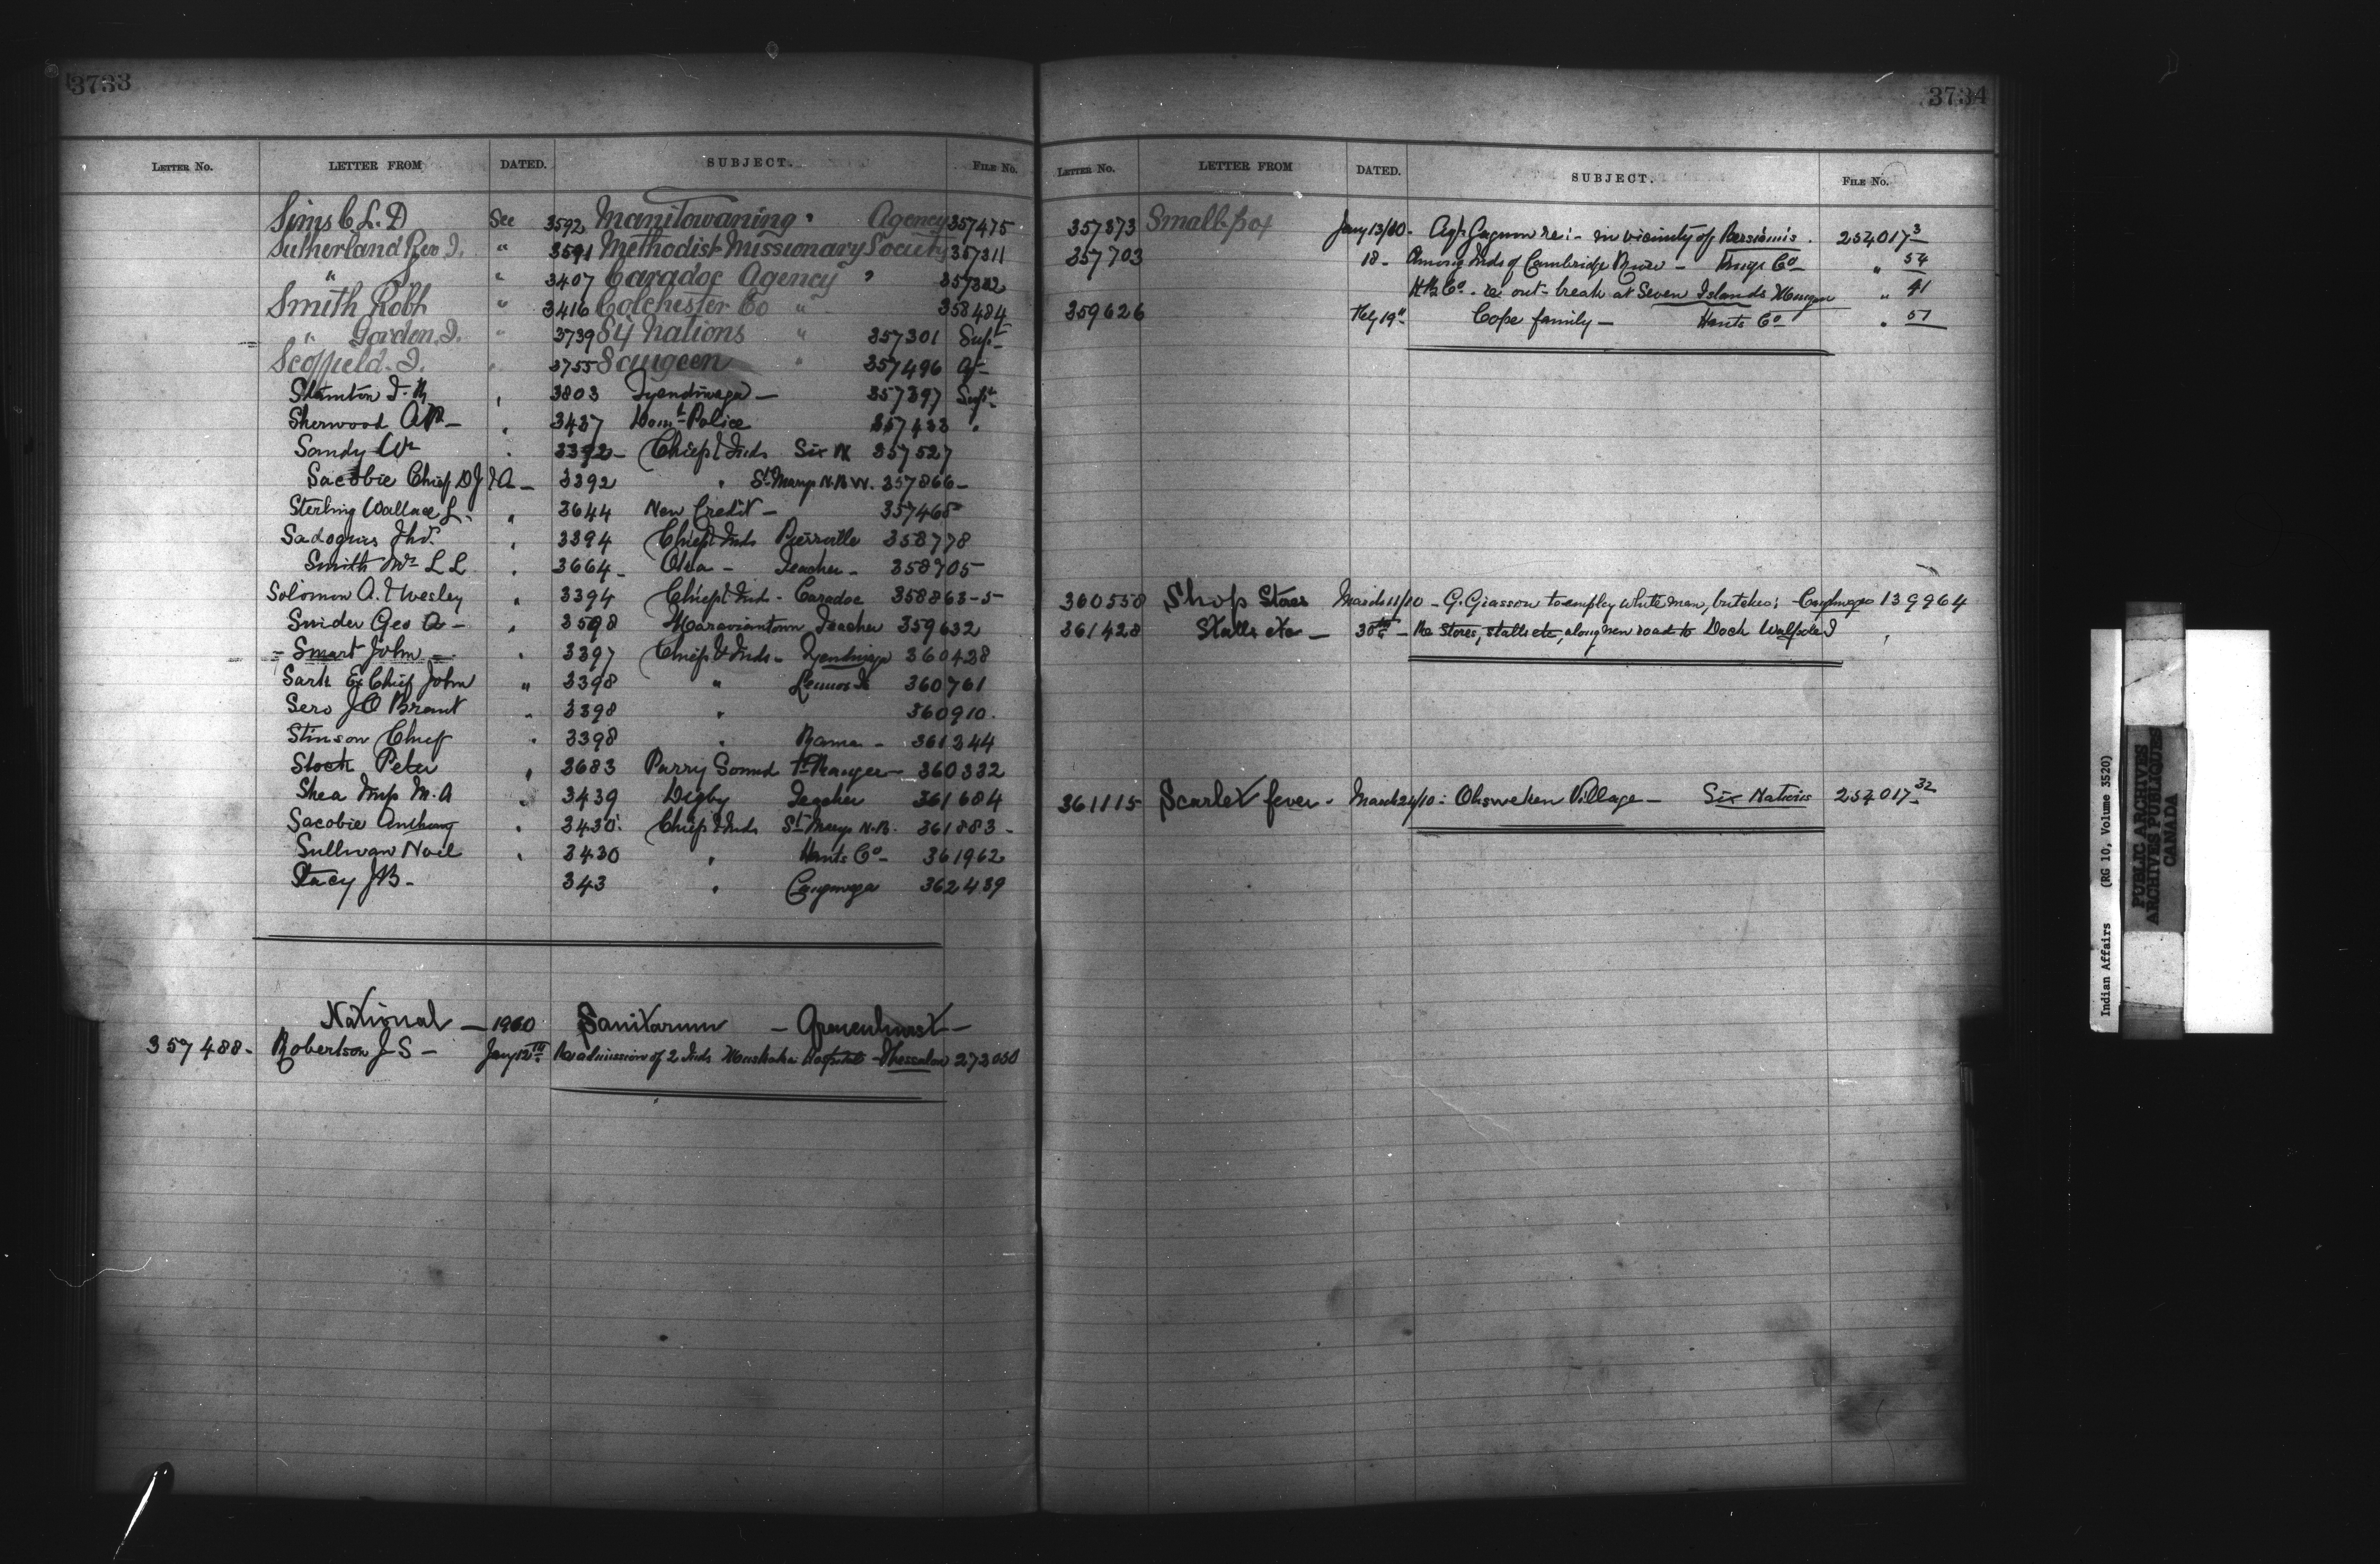 3733
LETTER No. LETTER FROM DATED. SUBJECT. FILE No.
Sims C L. D See 3592 Manitowaning " Agency 357475
Sutherland Rev. " 3591 Methodist Missionary Society 357311
" " 3407 Caradoc Agency "
Smith Robt " 3416 Colchester Co " 358484
" Gordon J. " 3739 Six Nations " 357301 Supt
Scoffield. J. " 3755 Saugeen " 357496 Ag
" 3803 Tyendinaga — 357397 Supt
Sherwood AP — " 3437 Domn Police 357433 "
Sandy Wm " 3392 — Chief & Inds Six N 357527
Sacobie Chief D J & A — 3392 " St Marys N.B. 357866 —
Sterling Wallace L. " 3644 New Credit — 357465
Jhd. " 3394 Chief & Inds Pierreville 358778
Smith Mrs L L " 3664 — Oka — Teacher — 358705
Solomon A. & Wesley " 3394 Chief & Inds - Caradoc 358863-5
Snider Geo A — " 3598 Moraviantown Teacher 359632
= Smart John = " 3397 Chief & Inds — Tyendinaga 360428
Sark Ex Chief John " 3398 " Lennox Is 360761
Sero J O Brant " 3398 " 360910.
Stinson Chief " 3398 " Rama — 361244
Stock Peter " 3683 Parry Sound Ft Ranger — 360332
Shea Miss M. A " 3439 Digby Teacher 361684
Sacobie Anthony " 3430 Chief & Inds St Marys N.B. 361883 —
Sullivan Noel " 3430 " Hants Co — 361962
Stacy JB — 343 " Caughnawaga 362439
National — 1910 Sanitarum — Gravenhurst —
357488 - Robertson J S — Jany 12th Re admission of 2 Inds Muskoka Hospital — Thessalon 273050
3734
LETTER No. LETTER FROM DATED. SUBJECT. FILE No.
357873 Small-pox Jany 13/10 - Agt Gagnon re: - in vicinity of Bersimis. 254017-3
357703 18 - Among Inds of Cambridge — Kings Co — " 54
H B Co. re out-break at Seven Islands " 41
359626 Feby 19" Cope family — Hants Co — " 57
360558 Shop Stores March 11/10 — G. Giasson to employ white men, butcher: Caughnawaga 139964
361428 Stalls etc — 30th — Re Stores, stalls etc, along new road to Dock Walpole I "
361115 Scarlet fever - March 24/10: Ohsweken Village — Six Nations 254017-32
Indian Affairs (RG 10, Volume 3520)
PUBLIC ARCHIVES
ARCHIVES PUBLIQUES
CANADA